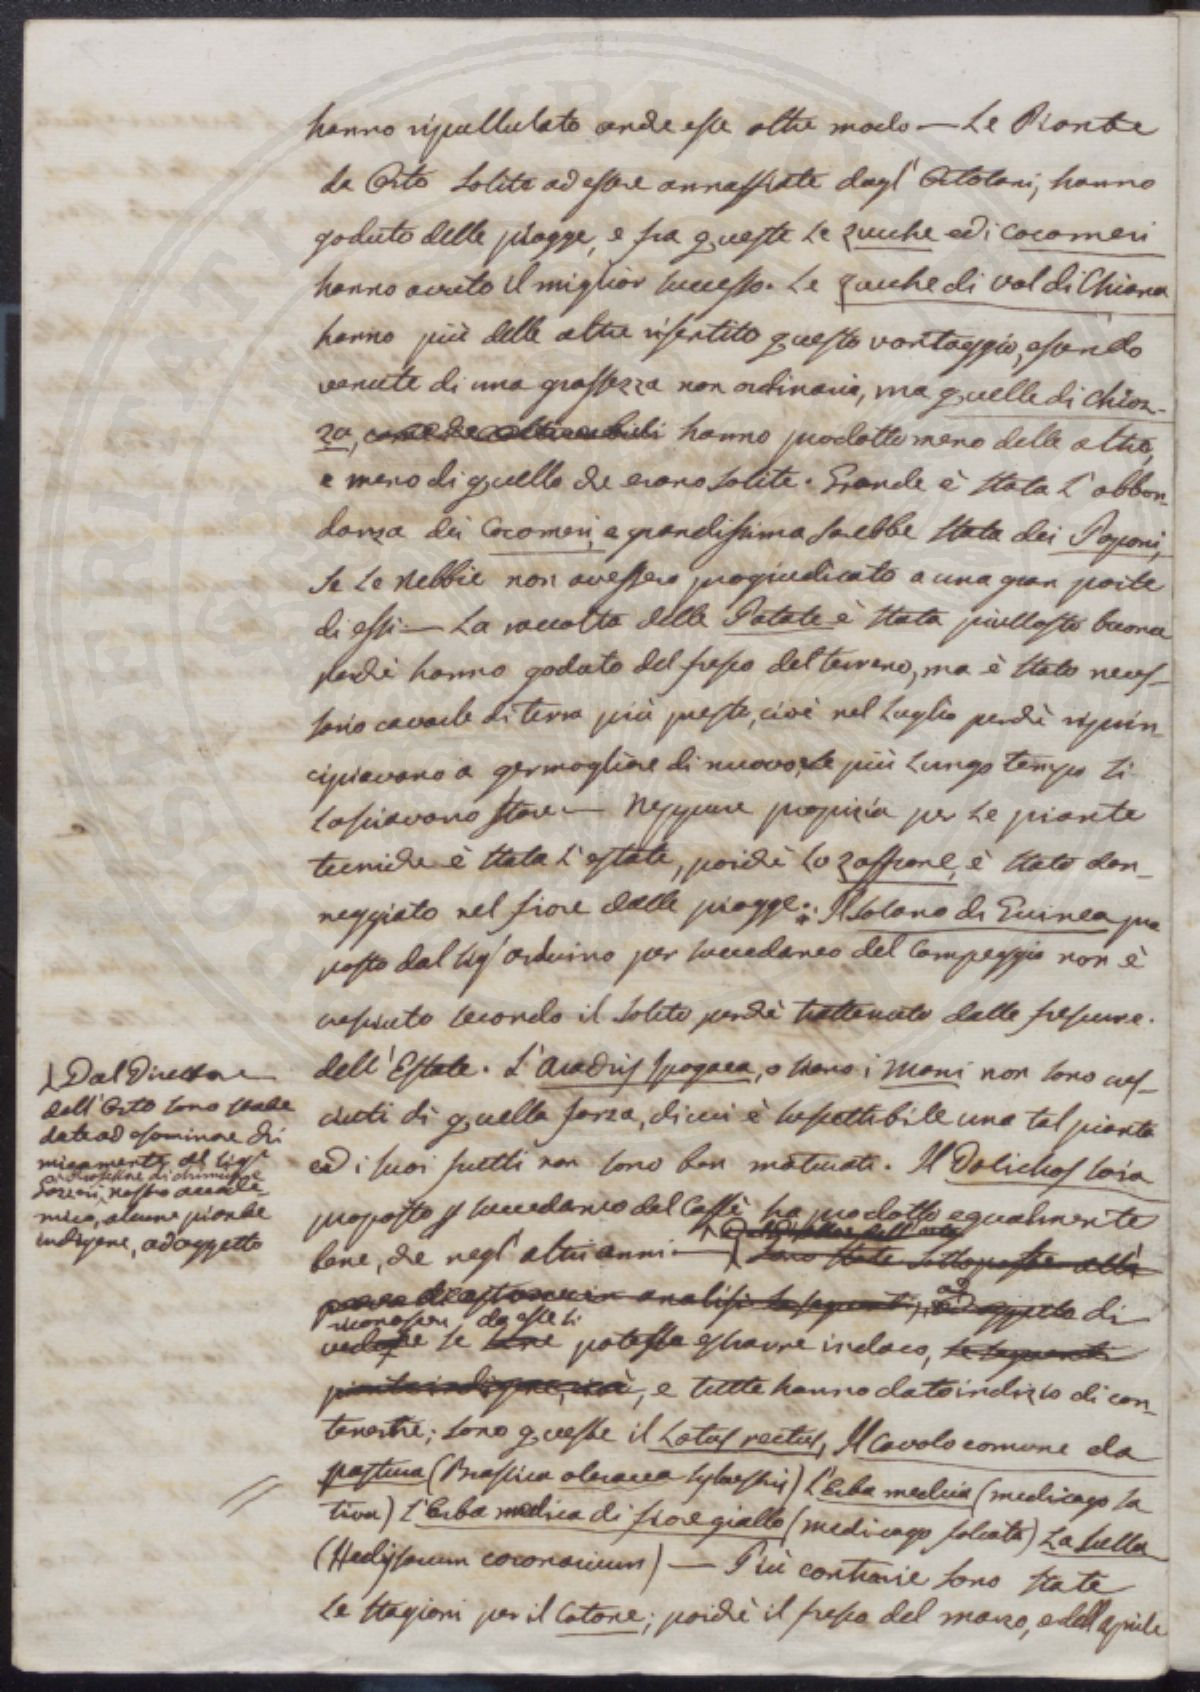 hanno ripullulato anche esse oltre modo — Le Piante
da Orto solite ad essere annaffiate dagl' Ortolani, hanno
goduto delle piogge, e fra queste le zucche ed i cocomeri
hanno avuto il miglior successo. Le zucche di val di Chiana
hanno più delle altre risentito questo vantaggio, essendo
venute di una grossezza non ordinaria, ma quelle di Chioz-
za, hanno prodotto meno delle altre,
e meno di quello che erano solite. Grande è stata l'abbon-
danza dei Cocomeri, e grandissima sarebbe stata dei Poponi,
se le nebbie non avessero progiudicato a una gran parte
di essi — La raccolta delle Patate è stata piuttosto buona
perchè hanno goduto del fresco del terreno, ma è stato neces-
sario cavarle di terra più presto, cioè nel Luglio perchè riprin-
cipiavano a germogliare di nuovo, se più lungo tempo si
lasciavano stare — Neppure propizia per le piante
tecniche è stata l'estate, poichè lo zaffrane, è stato dan-
neggiato nel fiore dalle piogge. Il Solano di Guinea pro
posto dal Sig.r Arduino per succedaneo del Campeggio non è
cresciuto secondo il solito perchè trattenuto dalle frescure
dell'Estate. L'Arachis Ipogaea, o siano i Mani non sono cres-
ciuti di quella forza, di cui è suscettibile una tal pianta
ed i suoi frutti non sono ben maturati. Il Dolichos Soia
proposto p succedaneo del Caffè ha prodotto egualmente
bene, che negl'altri anni — Dal Direttore dell'orto
sono state sottoposte alla
analisi le seguenti, ad oggetto di
riconoscere da esse si
vedere se potesse estrarre indaco, le seguenti
piante indigene, cioè, e tutte hanno dato indizio di con-
tenerne; sono queste il Lotus rectus, Il Cavolo comune da
pastura (Brassica oleracea sylvestris) L'Erba medica (medicago sa
tiva) L'Erba medica di fiore giallo (medicago falcata) La Sulla
(Hedysarum coronarium) — Più contrarie sono state
le stagioni per il Cotone; poichè il fresco del marzo, e dell'aprile
Dal Direttore
dell'Orto sono state
date ad esaminare chi
micamente al Sig.r
Professore di chimica
nostro accade-
mico, alcune piante
indigene, ad oggetto